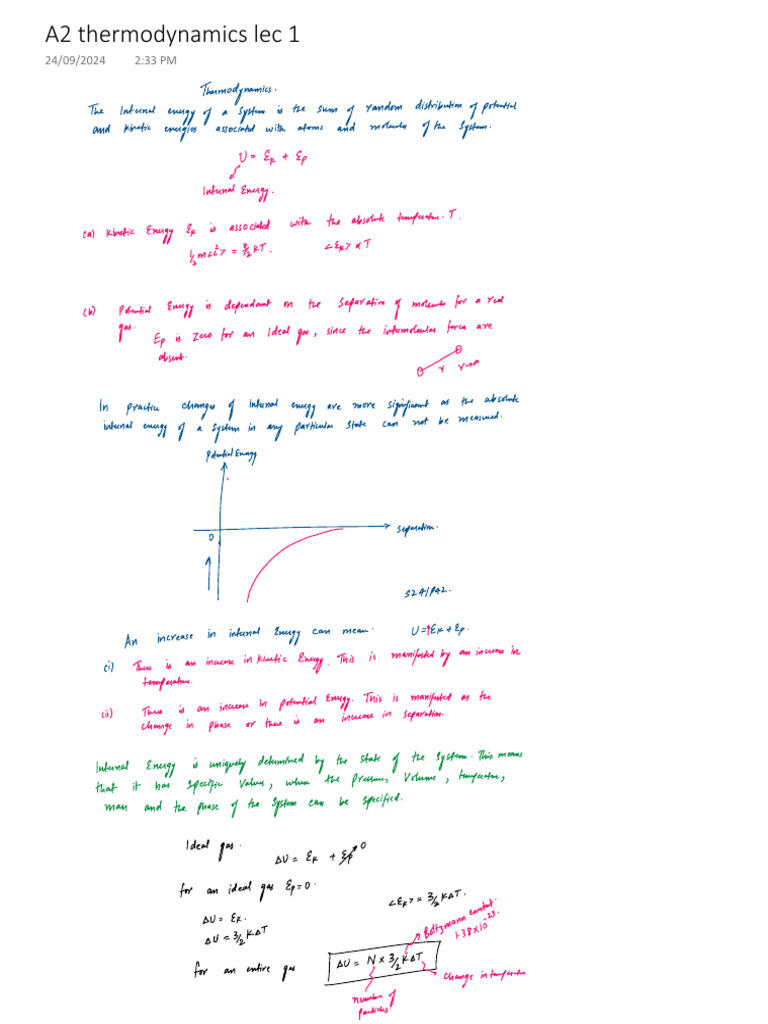 A2 thermodynamics lec 1
24/09/2024 2:33 PM
Thermodynamics.
The Internal energy of a system is the sum of random distribution of potential
and kinetic energies associated with atoms and molecules of the system.
U = Ek + Ep
Internal Energy.
(a) Kinetic Energy Ek is associated with the absolute temperature T.
1/2 m<c²> = 3/2 kT. <Ek> ∝ T
(b) Potential Energy is dependant on the separation of molecules for a real
gas.
Ep is zero for an Ideal gas, since the intermolecular forces are
absent.
r r→∞
In practice changes of internal energy are more significant as the absolute
internal energy of a system in any particular state can not be measured.
Potential Energy
0
Separation.
S24/P42.
An increase in internal Energy can mean. U = ↑Ek + Ep.
(i) There is an increase in kinetic Energy. This is manifested by an increase in
temperature.
(ii) There is an increase in potential Energy. This is manifested as the
change in phase or there is an increase in separation.
Internal Energy is uniquely determined by the state of the system. This means
that it has specific values, when the pressure, volume, temperature,
mass and the phase of the system can be specified.
Ideal gas.
ΔU = Ek + Ep 0
for an ideal gas Ep=0.
<Ek> = 3/2 kΔT.
ΔU = Ek.
ΔU = 3/2 kΔT
Boltzmann constant.
1.38×10⁻²³.
for an entire gas
ΔU = N × 3/2 kΔT
change in temperature
number of
particles